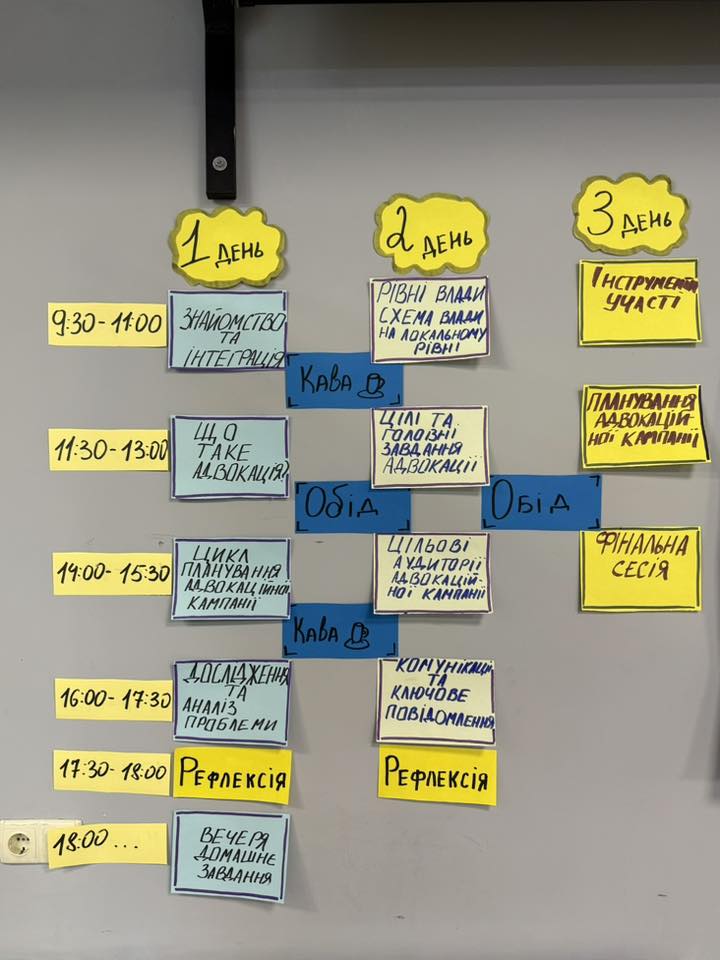 1 ДЕНЬ
2 ДЕНЬ
3 ДЕНЬ
9:30-11:00
ЗНАЙОМСТВО
ТА
ІНТЕГРАЦІЯ
РІВНІ ВЛАДИ
СХЕМА ВЛАДИ
НА ЛОКАЛЬНОМУ
РІВНІ
ІНСТРУМЕНТИ
УЧАСТІ
КАВА
11:30-13:00
ЩО
ТАКЕ
АДВОКАЦІЯ?
ЦІЛІ ТА
ГОЛОВНІ
ЗАВДАННЯ
АДВОКАЦІЇ
ПЛАНУВАННЯ
АДВОКАЦІЙ-
НОЇ КАМПАНІЇ
ОБІД
ОБІД
14:00-15:30
ЦИКЛ
ПЛАНУВАННЯ
АДВОКАЦІЙНОЇ
КАМПАНІЇ
ЦІЛЬОВІ
АУДИТОРІЇ
АДВОКАЦІЙ-
НОЇ КАМПАНІЇ
ФІНАЛЬНА
СЕСІЯ
КАВА
16:00-17:30
ДОСЛІДЖЕННЯ
ТА
АНАЛІЗ
ПРОБЛЕМИ
КОМУНІКАЦІЇ
ТА
КЛЮЧОВЕ
ПОВІДОМЛЕННЯ
17:30-18:00
РЕФЛЕКСІЯ
РЕФЛЕКСІЯ
18:00...
ВЕЧЕРЯ
ДОМАШНЄ
ЗАВДАННЯ